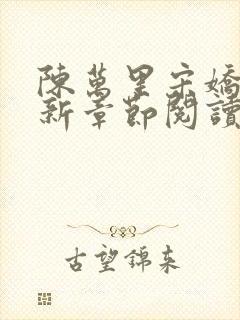 陳萬里宋嬌
新章節閱讀
古望錦來